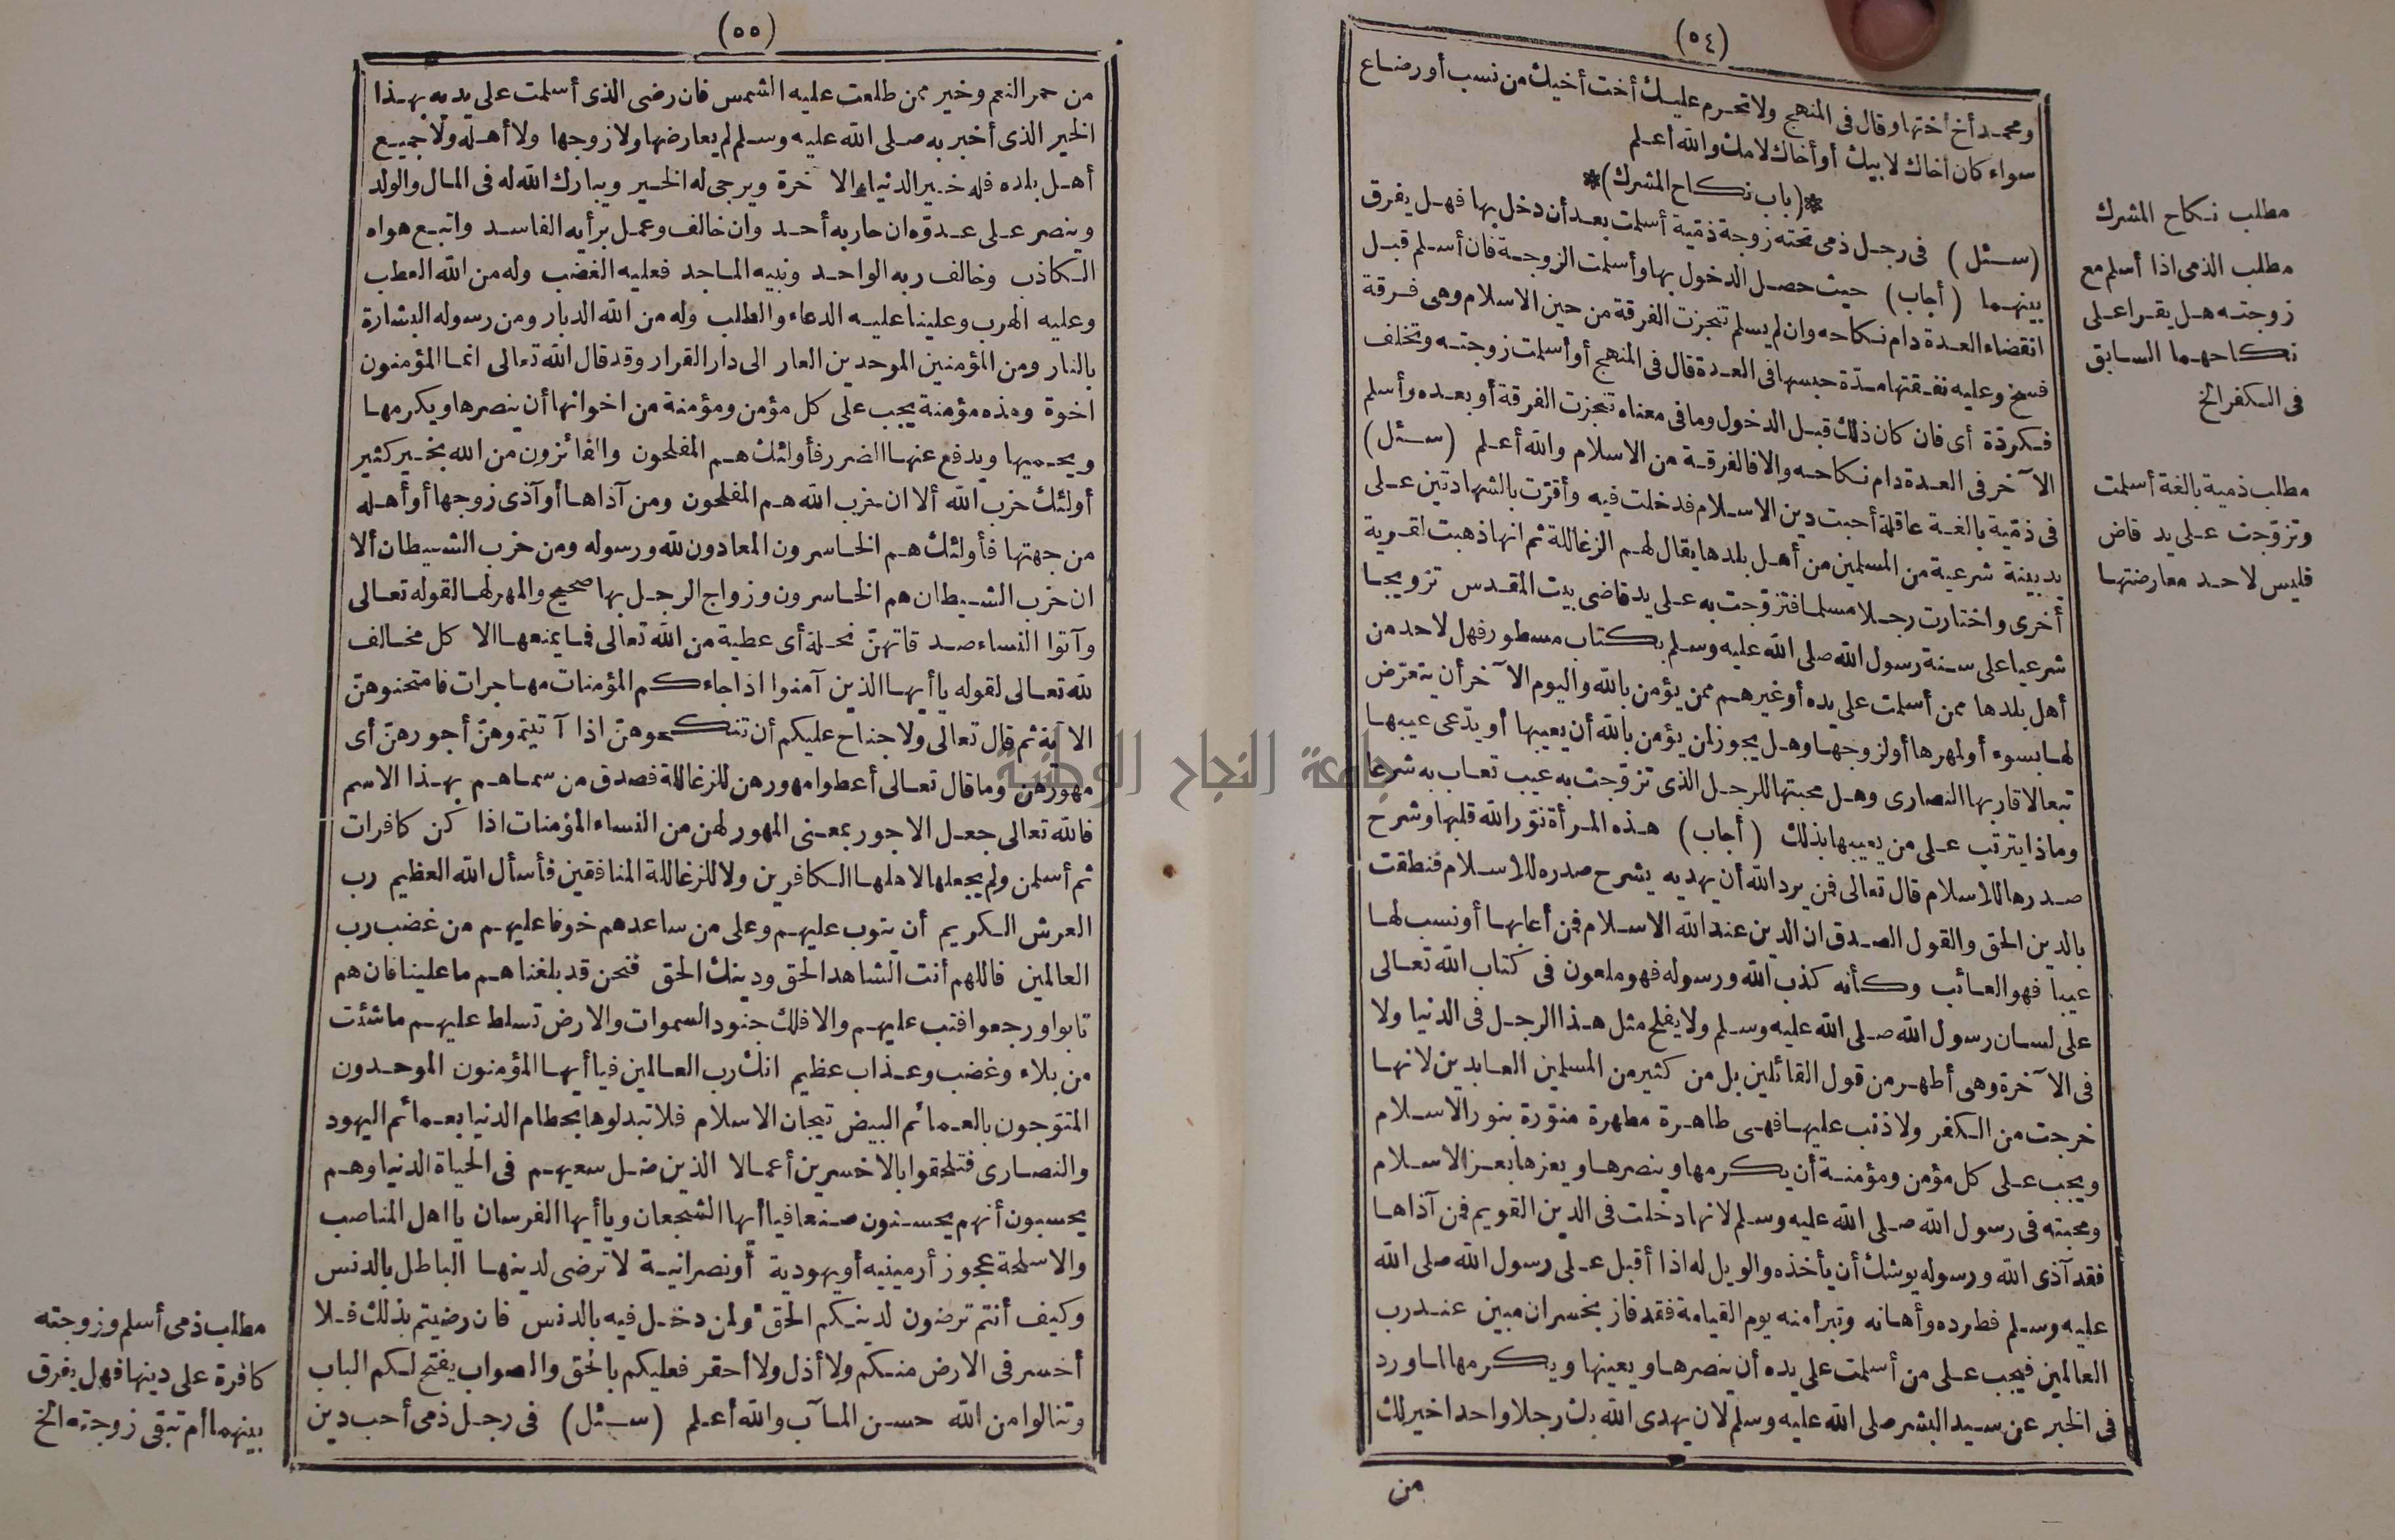 (٥٤)
ومحمد أخ اختها وقال فى المنهج ولا تحرم عليك أخت أخيك من نسب أو رضاع
سواء كان أخاك لابيك أو أخاك لامك والله أعلم
*(باب نكاح المشرك)*
(سئل) فى رجل ذمى تحته زوجة ذمّية أسلمت بعد أن دخل بها فهل يفرق
بينهما (أجاب) حيث حصل الدخول بها وأسلمت الزوجة فان أسلم قبل
انقضاء العدة دام نكاحه وان لم يسلم تنجزت الفرقة من حين الاسلام وهى فرقة
فسخ وعليه نفقتها مدّة حبسها فى العدة قال فى المنهج أو أسلمت زوجته وتخلف
فكردّة أى فان كان ذلك قبل الدخول وما فى معناه تنجزت الفرقة أو بعده وأسلم
الآخر فى العدة دام نكاحه والا فالفرقة من الاسلام والله أعلم (سئل)
فى ذمّية بالغة عاقلة أحبت دين الاسلام فدخلت فيه وأقرّت بالشهادتين على
يد بينة شرعية من المسلمين من أهل بلدها يقال لهم الزغاللة ثم انها ذهبت لقرية
أخرى واختارت رجلا مسلما فتزوّجت به على يد قاضى بيت المقدس تزويجا
شرعيا على سنة رسول الله صلى الله عليه وسلم بكتاب مسطور فهل لاحد من
أهل بلدها ممن أسلمت على يده أو غيرهم ممن يؤمن بالله واليوم الآخر أن يتعرّض
لها بسوء أو لمهرها أو لزوجها وهل يجوز لمن يؤمن بالله أن يعيبها أو يدّعى عيبها
تبعا لاقاربها النصارى وهل محبتها للرجل الذى تزوّجت به عيب تعاب به شرعا
وماذا يترتب على من يعيبها بذلك (أجاب) هذه المرأة نوّر الله قلبها وشرح
صدرها للاسلام قال تعالى فمن يرد الله أن يهديه يشرح صدره للاسلام فنطقت
بالدين الحق والقول الصدق ان الدين عند الله الاسلام فمن أعابها أو نسب لها
عيبا فهو العائب وكأنه كذب الله ورسوله فهو ملعون فى كتاب الله تعالى
على لسان رسول الله صلى الله عليه وسلم ولا يفلح مثل هذا الرجل فى الدنيا ولا
فى الآخرة وهى أطهر من قول القائلين بل من كثير من المسلمين العابدين لانها
خرجت من الكفر ولا ذنب عليها فهى طاهرة مطهرة منوّرة بنور الاسلام
ويجب على كل مؤمن ومؤمنة أن يكرمها وينصرها ويعزها بعز الاسلام
ومحبته فى رسول الله صلى الله عليه وسلم لانها دخلت فى الدين القويم فمن آذاها
فقد آذى الله ورسوله يوشك أن يأخذه والويل له اذا أقبل على رسول الله صلى الله
عليه وسلم فطرده وأهانه وتبرأ منه يوم القيامة فقد فاز بخسران مبين عند رب
العالمين فيجب على من أسلمت على يده أن ينصرها ويعينها ويكرمها لما ورد
فى الخبر عن سيد البشر صلى الله عليه وسلم لان يهدى الله بك رجلا واحدا خير لك
من
مطلب نكاح المشرك
مطلب الذمى اذا أسلم مع
زوجته هل يقرا على
نكاحهما السابق
فى الكفر الخ
مطلب ذمية بالغة أسلمت
وتزوّجت على يد قاض
فليس لاحد معارضتها
(٥٥)
من حمر النعم وخير ممن طلعت عليه الشمس فان رضى الذى أسلمت على يديه بهذا
الخير الذى أخبر به صلى الله عليه وسلم لم يعارضها ولا زوجها ولا أهله ولا جميع
أهل بلده فله خير الدنيا والآخرة ويرجى له الخير ويبارك الله له فى المال والولد
وينصر على عدوّه ان حاربه أحد وان خالف وعمل برأيه الفاسد واتبع هواه
الكاذب وخالف ربه الواحد ونبيه الماجد فعليه الغضب وله من الله العطب
وعليه الهرب وعلينا عليه الدعاء والطلب وله من الله الدبار ومن رسوله البشارة
بالنار ومن المؤمنين الموحدين العار الى دار القرار وقد قال الله تعالى انما المؤمنون
اخوة وهذه مؤمنة يجب على كل مؤمن ومؤمنة من اخوانها أن ينصرها ويكرمها
ويحميها ويدفع عنها الضرر فأولئك هم المفلحون والفائزون من الله بخير كثير
أولئك حزب الله ألا ان حزب الله هم المفلحون ومن آذاها أو آذى زوجها أو أهله
من جهتها فأولئك هم الخاسرون المعادون لله ورسوله ومن حزب الشيطان ألا
ان حزب الشيطان هم الخاسرون وزواج الرجل بها صحيح والمهر لها لقوله تعالى
وآتوا النساء صدقاتهنّ نحلة أى عطية من الله تعالى فما يمنعها الا كل مخالف
لله تعالى لقوله يا أيها الذين آمنوا اذا جاءكم المؤمنات مهاجرات فامتحنوهنّ
الآية ثم قال تعالى ولا جناح عليكم أن تنكحوهنّ اذا آتيتموهنّ أجورهنّ أى
مهورهن وما قال تعالى أعطوا مهورهن للزغاللة فصدق من سماهم بهذا الاسم
فالله تعالى جعل الاجور بمعنى المهور لهن من النساء المؤمنات اذا كن كافرات
ثم أسلمن ولم يجعلها لاهلها الكافرين ولا للزغاللة المنافقين فأسأل الله العظيم رب
العرش الكريم أن يتوب عليهم وعلى من ساعدهم خوفا عليهم من غضب رب
العالمين فاللهم أنت الشاهد الحق ودينك الحق فنحن قد بلغناهم ما علينا فان هم
تابوا ورجعوا فتب عليهم والا فلك جنود السموات والارض تسلط عليهم ما شئت
من بلاء وغضب وعذاب عظيم انك رب العالمين فيا أيها المؤمنون الموحدون
المتوّجون بالعمائم البيض تيجان الاسلام فلا تبدلوها بحطام الدنيا بعمائم اليهود
والنصارى فتلحقوا بالاخسرين أعمالا الذين ضل سعيهم فى الحياة الدنيا وهم
يحسبون أنهم يحسنون صنعا فيا أيها الشجعان ويا أيها الفرسان يا اهل المناصب
والاسلحة عجوز أرمينيه أو يهودية أو نصرانية لا ترضى لدينها الباطل بالدنس
وكيف أنتم ترضون لدينكم الحق ولمن دخل فيه بالدنس فان رضيتم بذلك فلا
أخسر فى الارض منكم ولا أذل ولا أحقر فعليكم بالحق والصواب يفتح لكم الباب
وتنالوا من الله حسن المآب والله أعلم (سئل) فى رجل ذمى أحب دين
مطلب ذمى أسلم وزوجته
كافرة على دينها فهل يفرق
بينهما أم تبقى زوجته الخ
جامعة النجاح الوطنية